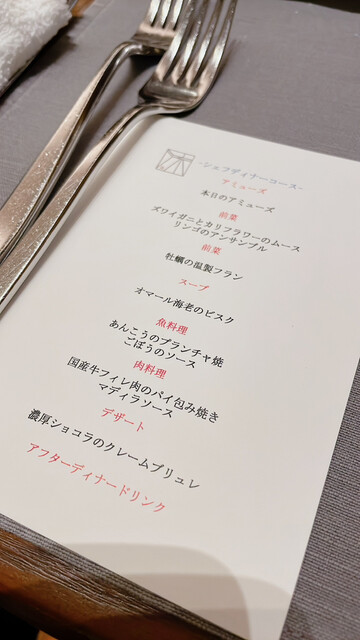 -シェフディナーコース-
アミューズ
本日のアミューズ
前菜
ズワイガニとカリフラワーのムース
リンゴのアンサンブル
前菜
牡蠣の温製フラン
スープ
オマール海老のビスク
魚料理
あんこうのプランチャ焼
ごぼうのソース
肉料理
国産牛フィレ肉のパイ包み焼き
マディラソース
デザート
濃厚ショコラのクレームブリュレ
アフターディナードリンク